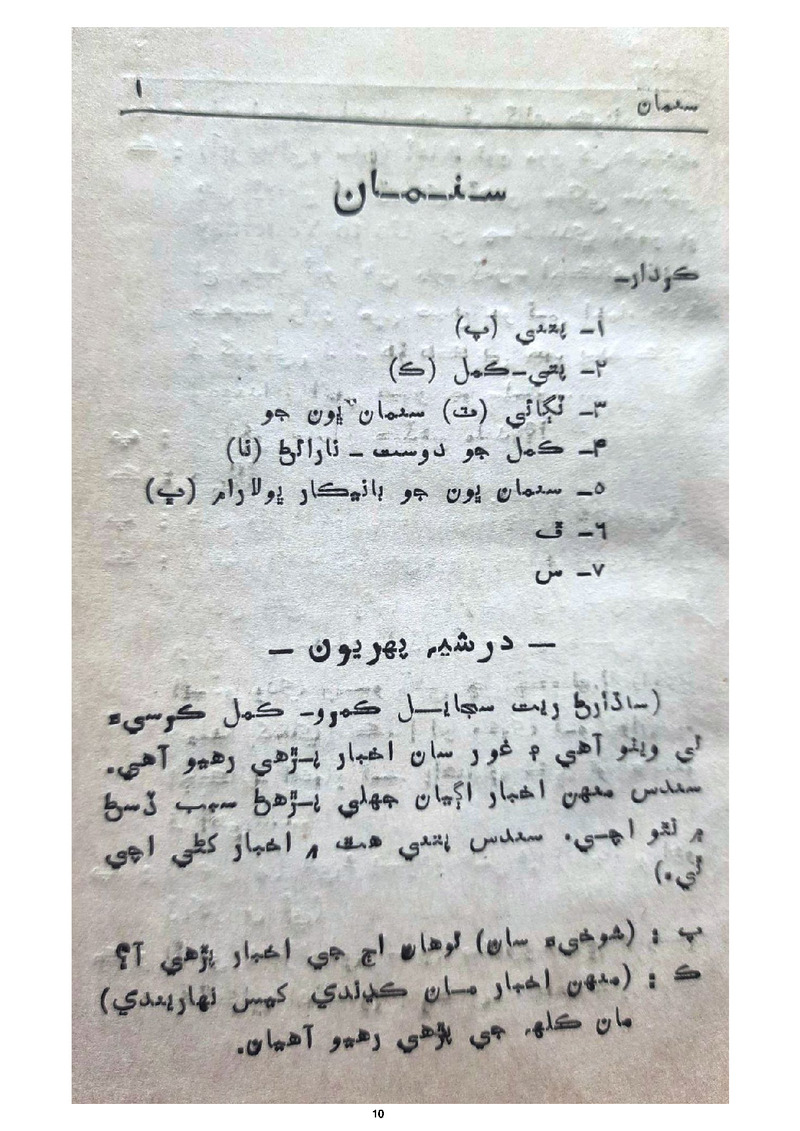 سنمان ۱
سـنـمـان
ڪردار۔
۱۔ پتني (پ)
۲۔ پتي۔ڪمل (ڪ)
۳۔ ٽڳائي (ٽ) سنمان ڀون جو
۴۔ ڪمل جو دوست ۔ نارائڻ (نا)
۵۔ سنمان ڀون جو بانيڪار ڀولارام (ڀ)
۶۔ ف
۷۔ س
— درشيہ پهريون —
(ساڌارڻ ريت سجايل ڪمرو۔ ڪمل ڪرسيءَ
تي ويٺو آهي ۽ غور سان اخبار پڙهي رهيو آهي.
سندس منهن اخبار اڳيان جهلي پڙهڻ سبب ڏسڻ
۾ نٿو اچي. سندس پتني هٿ ۾ اخبار کڻي اچي
ٿي.)
پ : (شوخيءَ سان) توهان اڄ جي اخبار پڙهي آ؟
ڪ : (منهن اخبار مان ڪڍندي کيس نهاريندي)
مان ڪلهہ جي پڙهي رهيو آهيان.
10